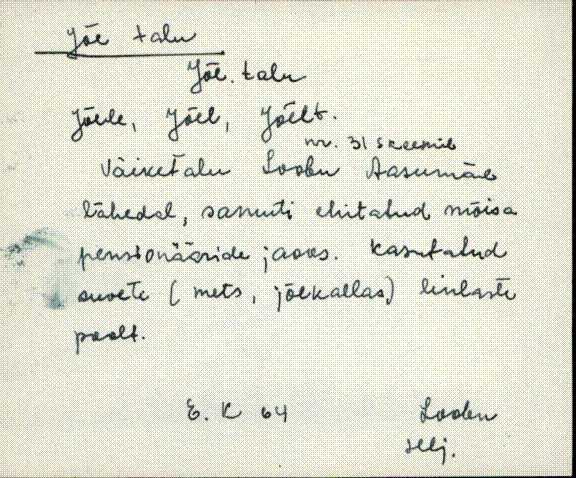 Jõe talu
Jõe talu
Jõele, Jõel, Jõelt.
nr. 31 skeemil
Väiketalu Loobu Aasumäe
lähedal, samuti ehitatud mõisa
pensionääride jaoks. Kasutatud
suvete (mets, jõekallas) linlaste
poolt.
E. K 64
Loobu
selj.